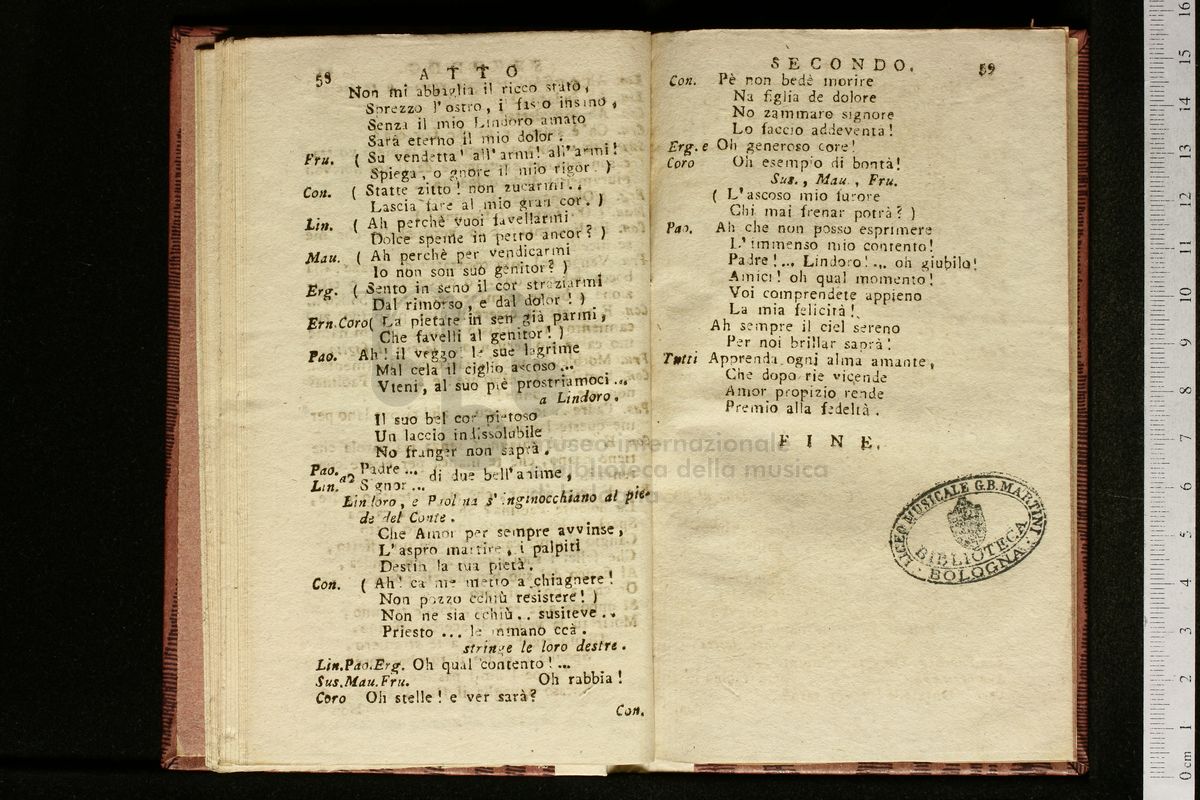 58
ATTO
Non mi abbaglia il ricco stato,
Sprezzo l'ostro, i fasto insano,
Senza il mio Lindoro amato
Sarà eterno il mio dolor.
Fru. ( Su vendetta! all'armi! all'armi!
Spiega, o gnore il mio rigor. )
Con. ( Statte zitto! non zucarmi..
Lascia fare al mio gran cor. )
Lin. ( Ah perchè vuoi favellarmi
Dolce speme in petto ancor? )
Mau. ( Ah perchè per vendicarmi
Io non son suo genitor? )
Erg. ( Sento in seno il cor straziarmi
Dal rimorso, e dal dolor! )
Ern.Coro( La pietate in sen già parmi,
Che favelli al genitor! )
Pao. Ah! il veggo! le sue lagrime
Mal cela il ciglio ascoso...
Vieni, al suo piè prostriamoci...
a Lindoro.
Il suo bel cor pietoso
Un laccio indissolubile
No franger non saprà.
Pao. Padre...
Lin. a2 Signor... di due bell'anime,
Lindoro, e Paolina s'inginocchiano al pie-
de del Conte.
Che Amor per sempre avvinse,
L'aspro martire, i palpiti
Destin la tua pietà.
Con. ( Ah! ca me metto a chiagnere!
Non pozzo cchiù resistere! )
Non ne sia cchiù.. susiteve..
Priesto... le mmano ccà.
stringe le loro destre.
Lin.Pao.Erg. Oh qual contento!...
Sus.Mau.Fru. Oh rabbia!
Coro Oh stelle! e ver sarà?
Con.
SECONDO.
59
Con. Pè non bedè morire
Na figlia de dolore
No zammaro signore
Lo faccio addeventa!
Erg. e Oh generoso core!
Coro Oh esempio di bontà!
Sus., Mau., Fru.
( L'ascoso mio furore
Chi mai frenar potrà? )
Pao. Ah che non posso esprimere
L'immenso mio contento!
Padre!... Lindoro!... oh giubilo!
Amici! oh qual momento!
Voi comprendete appieno
La mia felicità!
Ah sempre il ciel sereno
Per noi brillar saprà!
Tutti Apprenda ogni alma amante,
Che dopo rie vicende
Amor propizio rende
Premio alla fedeltà.
FINE.
museo internazionale
biblioteca della musica
LICEO MUSICALE G.B. MARTINI
BIBLIOTECA
BOLOGNA
0 cm 1 2 3 4 5 6 7 8 9 10 11 12 13 14 15 16